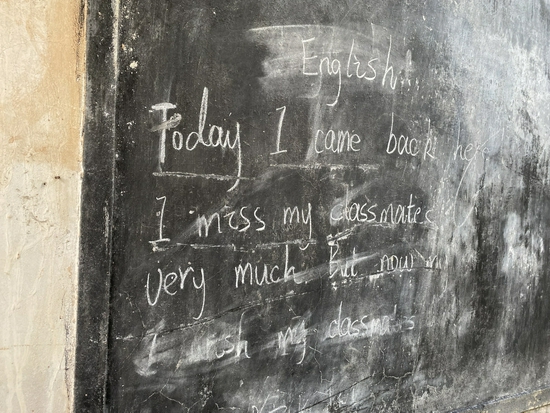 English
Today I came back here
I miss my classmates
very much. But now
I wish my classmates